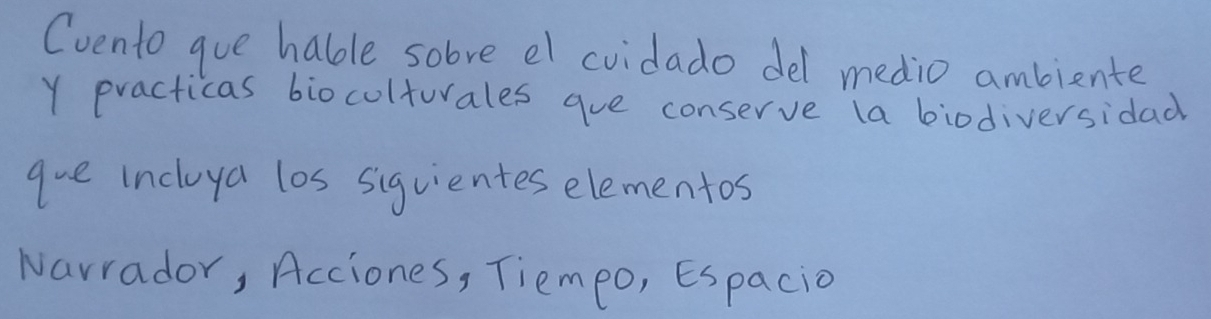 Cuento que hable sobre el cuidado del medio ambiente
Y practicas bioculturales que conserve la biodiversidad
que incluya los siguientes elementos
Narrador, Acciones, Tiempo, Espacio